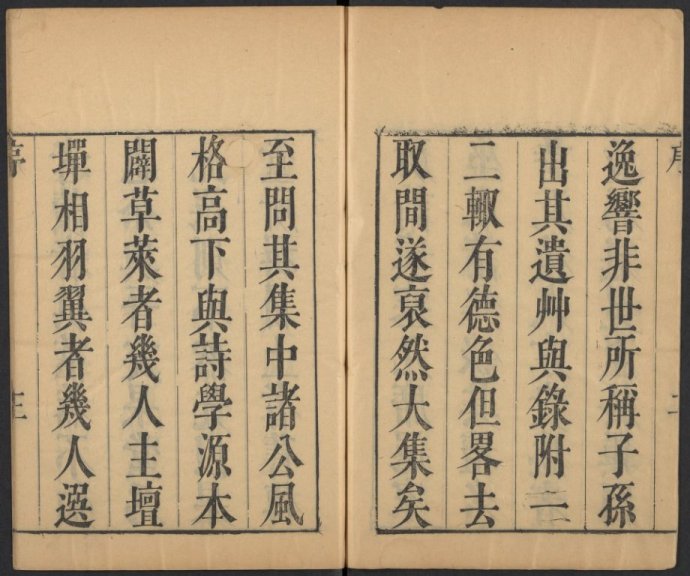 逸響非世所稱子孫
出其遺艸與錄附一
二輙有德色但畧去
取間遂裒然大集矣
至問其集中諸公風
格高下與詩學源本
闢草萊者幾人主壇
墠相羽翼者幾人選